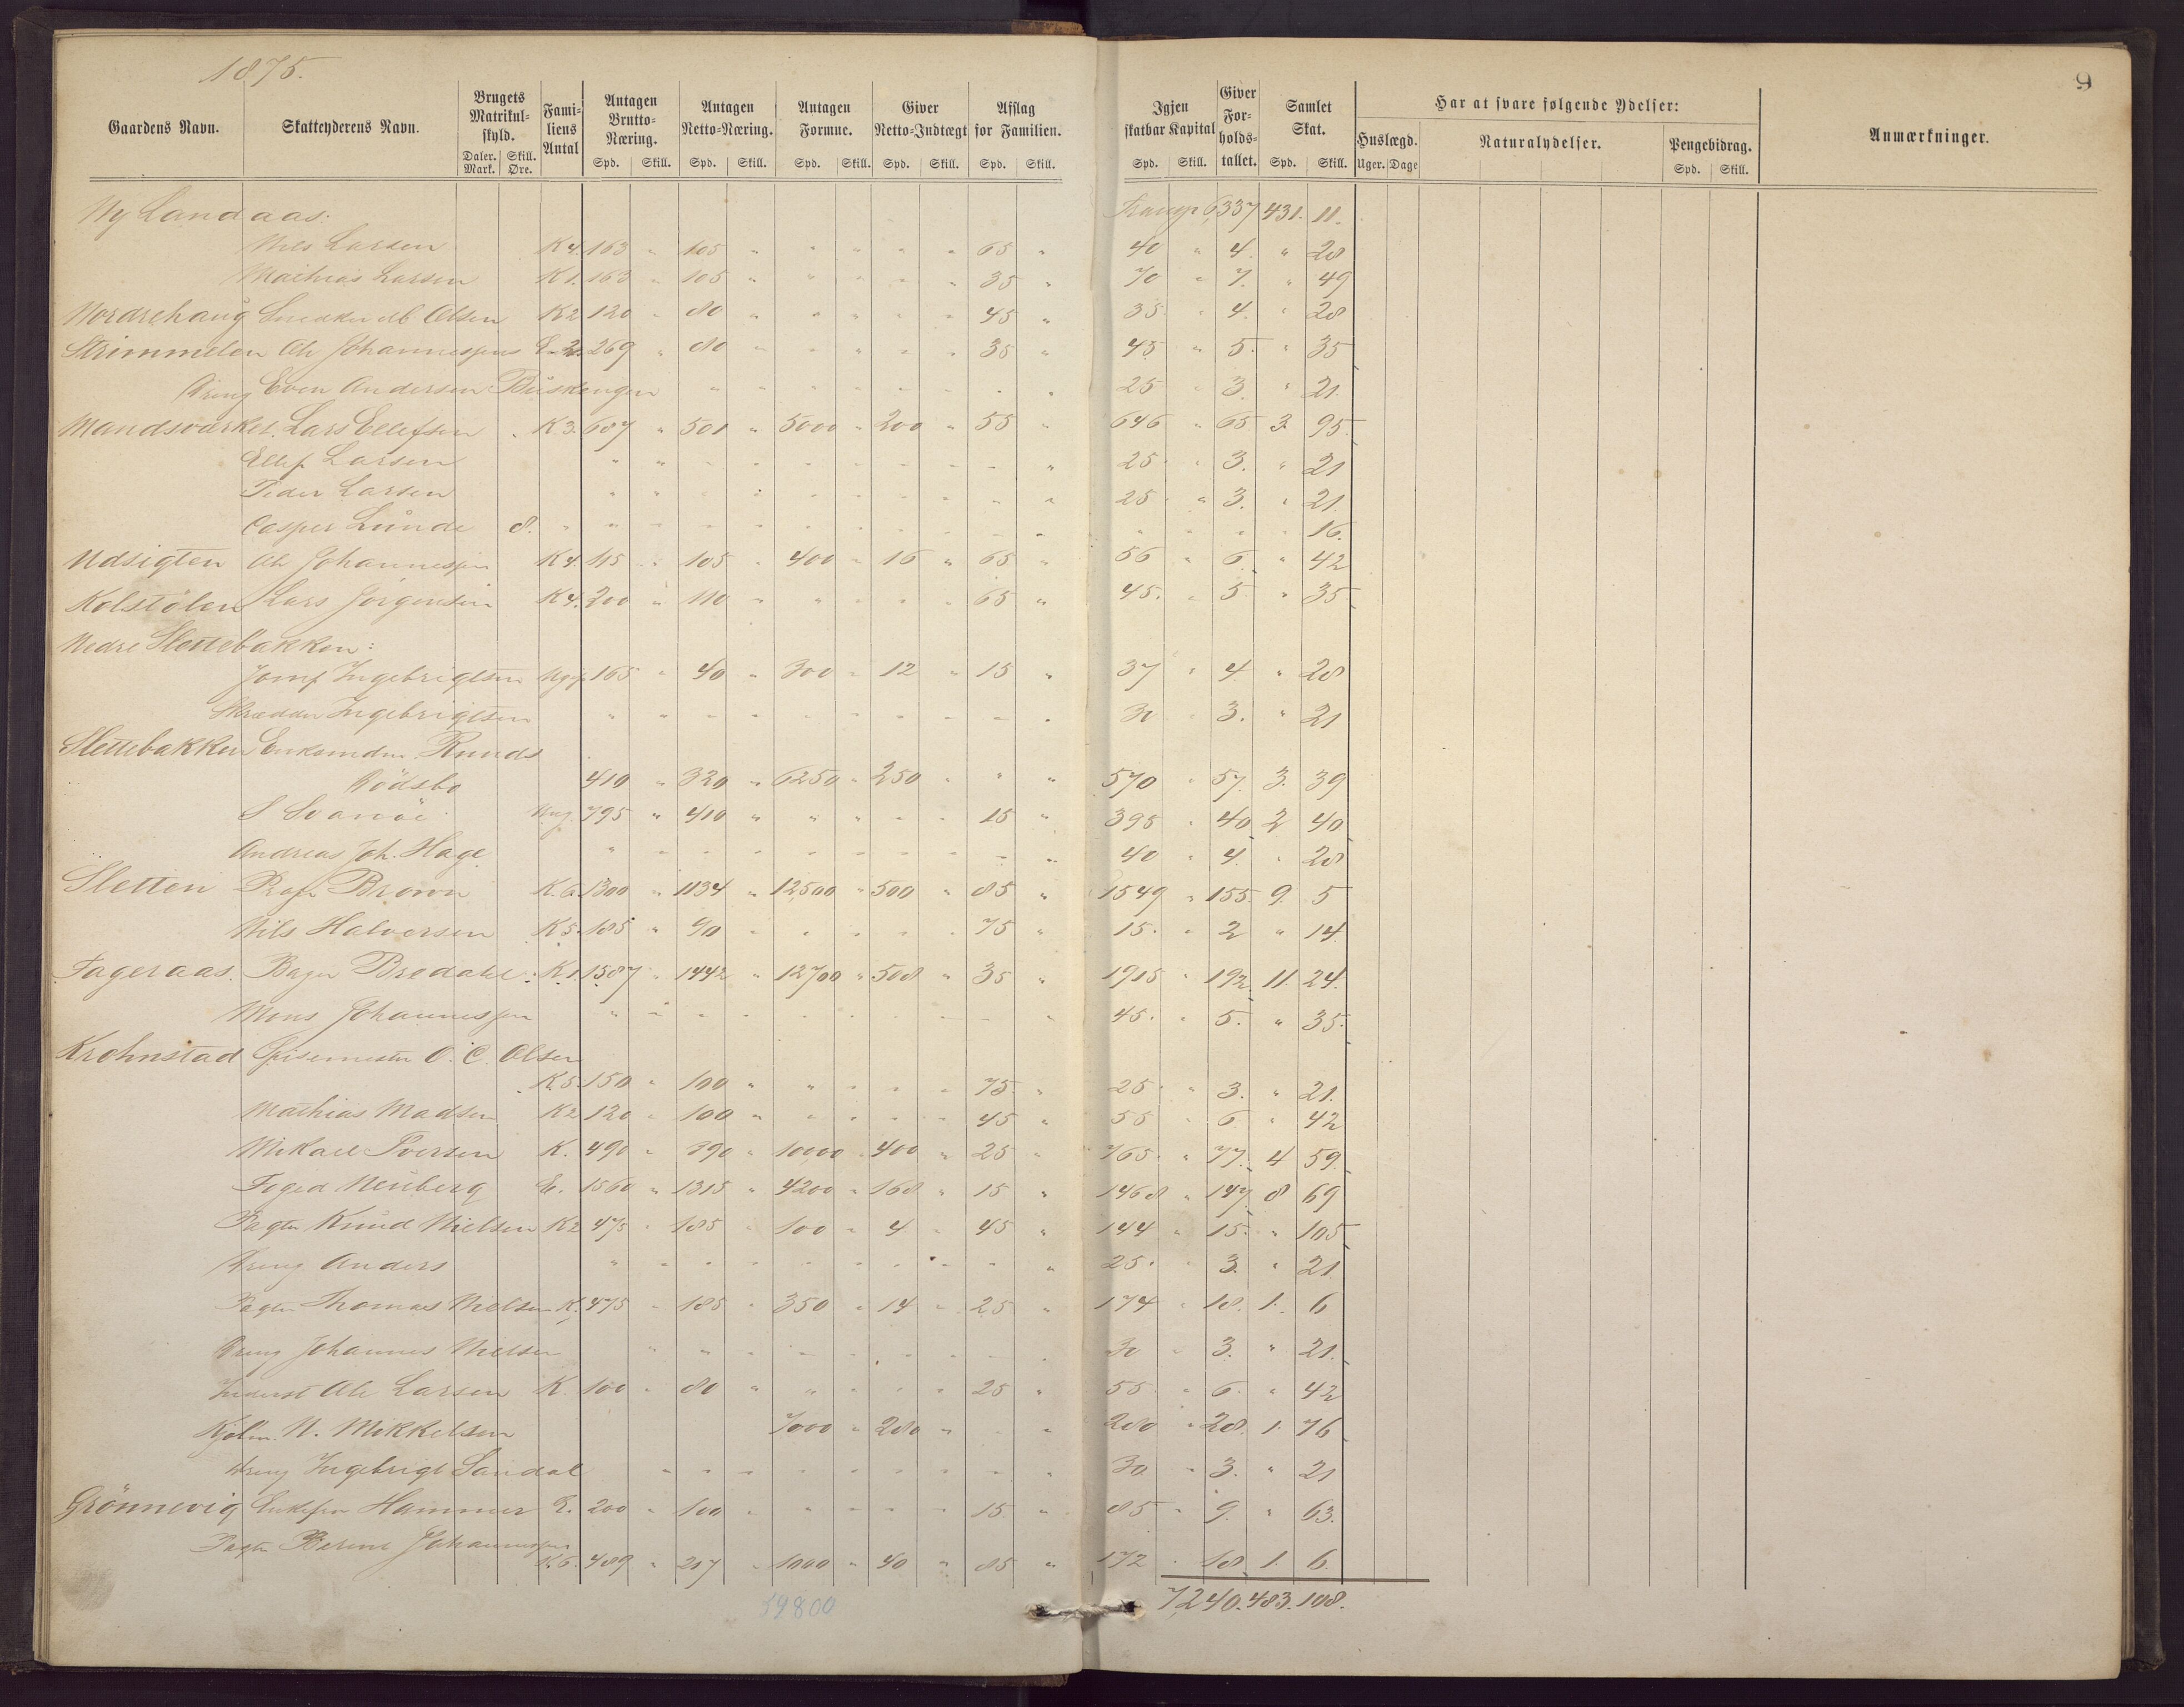 1875.
9
Gaardens Navn. Skatteyderens Navn. Brugets Matrikul-skyld. Daler. Mark. Skill. Øre. Familiens Antal Antagen Brutto-Næring. Spd. Skill. Antagen Netto-Næring. Spd. Skill. Antagen Formue. Spd. Skill. Giver Netto-Indtægt Spd. Skill. Afslag for Familien. Spd. Skill. Igjen skatbar Kapital Spd. Skill. Giver Forholdstallet. Samlet Skat. Spd. Skill. Har at svare følgende Ydelser: Huslægd. Uger. Dage Naturalydelser. Pengebidrag. Spd. Skill. Anmærkninger.
Ny Landaas. 6337 431. 11.
Nils Larsen K 4. 163 " 105 " " " " " 65 " 40 " 4. " 28
Mathias Larsen K 1. 163 " 105 " " " " " 35 " 70 " 7. " 49
Nordrehaug Snedker Olsen K 2 120 " 80 " " " " " 45 " 35 " 4. " 28
Strimmelen Ole Johannessen E 2. 269 " 80 " " " " " 35 " 45 " 5. " 35
Dreng Even Andersen Buskengen " " " " " " " " 25 " 3. " 21.
Mandsværket. Lars Ellefsen K 3. 687 " 501 " 5000 " 200 " 55 " 646 " 65. 3. 95.
Ellef Larsen " " " " " " " " " " 25 " 3. " 21
Peder Larsen " " " " " " " " " " 25 " 3. " 21.
Casper Lunde 8. " " " " " " " " " " " " " " 16.
Udsigten Ole Johannessen K 4. 115 " 105 " 400 " 16 " 65 " 56 " 6. " 42
Kolstølen Lars Jörgensen K 4. 200 " 110 " " " " " 65 " 45. " 5. " 35
Nedre Slettebakken:
Jomf Ingebrigtsen Ugift 165 " 40 " 300 " 12 " 15 " 37 " 4 " 28
Skrædder Ingebrigtsen " " " " " " " " " " 30 " 3. " 21
Slettebakken Enkemdm. Runds
Rödsbo 410 " 320 " 6250 " 250 " " " 570 " 57. 3. 39
S Svanöe Ug. 795 " 410 " " " " " 15 " 395 " 40. 2 40
Andreas Joh. Hage " " " " " " " " " " 40 " 4. " 28
Sletten Prof. Brown K. 6. 1300 " 1134 " 12,500 " 500 " 85 " 1549 " 155. 9. 5
Nils Halvorsen K 5. 185 " 90 " " " " " 75 " 15. " 2 " 14
Fageraas. Bager Bredahl. K. 1. 1587 " 1442 " 12700 " 508 " 35 " 1915 " 192. 11. 24.
Mons Johannessen " " " " " " " " " " 45. " 5. " 35.
Krohnstad Spisemester O. C. Olsen
K 5. 150 " 100 " " " " " 75. " 25 " 3. " 21.
Mathias Madsen K 2 120 " 100 " " " " " 45 " 55 " 6. " 42
Mikael Iversen K. 490 " 390 " 10000 " 400 " 25 " 765. " 77. 4 59.
Foged Neuberg E. 1560 " 1315 " 4200 " 168 " 15 " 1468 " 147. 8 69
Pagter Knud Nielsen K 2 475 " 185 " 100 " 4 " 45 " 144 " 15. " 105
Dreng Anders " " " " " " " " " " 25. " 3. " 21
Pagter Thomas Nielsen K. 475 " 185 " 350 " 14 " 25 " 174 " 18. 1. 6
Dreng Johannes Nielsen " " " " " " " " " " 30 " 3. " 21.
Inderst Ole Larsen K. 100 " 80 " " " " " 25 " 55 " 6. " 42
Kjöbm. N. Mikkelsen 7000 " 280 " " " 280 " 28. 1. 76
Dreng Ingebrigt Sandal " " " " " " " " " 30 " 3. " 21
Grönnevig Enkefru Hammer E. 200 " 100 " " " " " 15. " 85 " 9. " 63.
Pagter Berent Johannessen
K. 6. 489 " 217 " 1000 " 40 " 85 " 172 " 18. 1. 6
59800 7240. 483. 108.